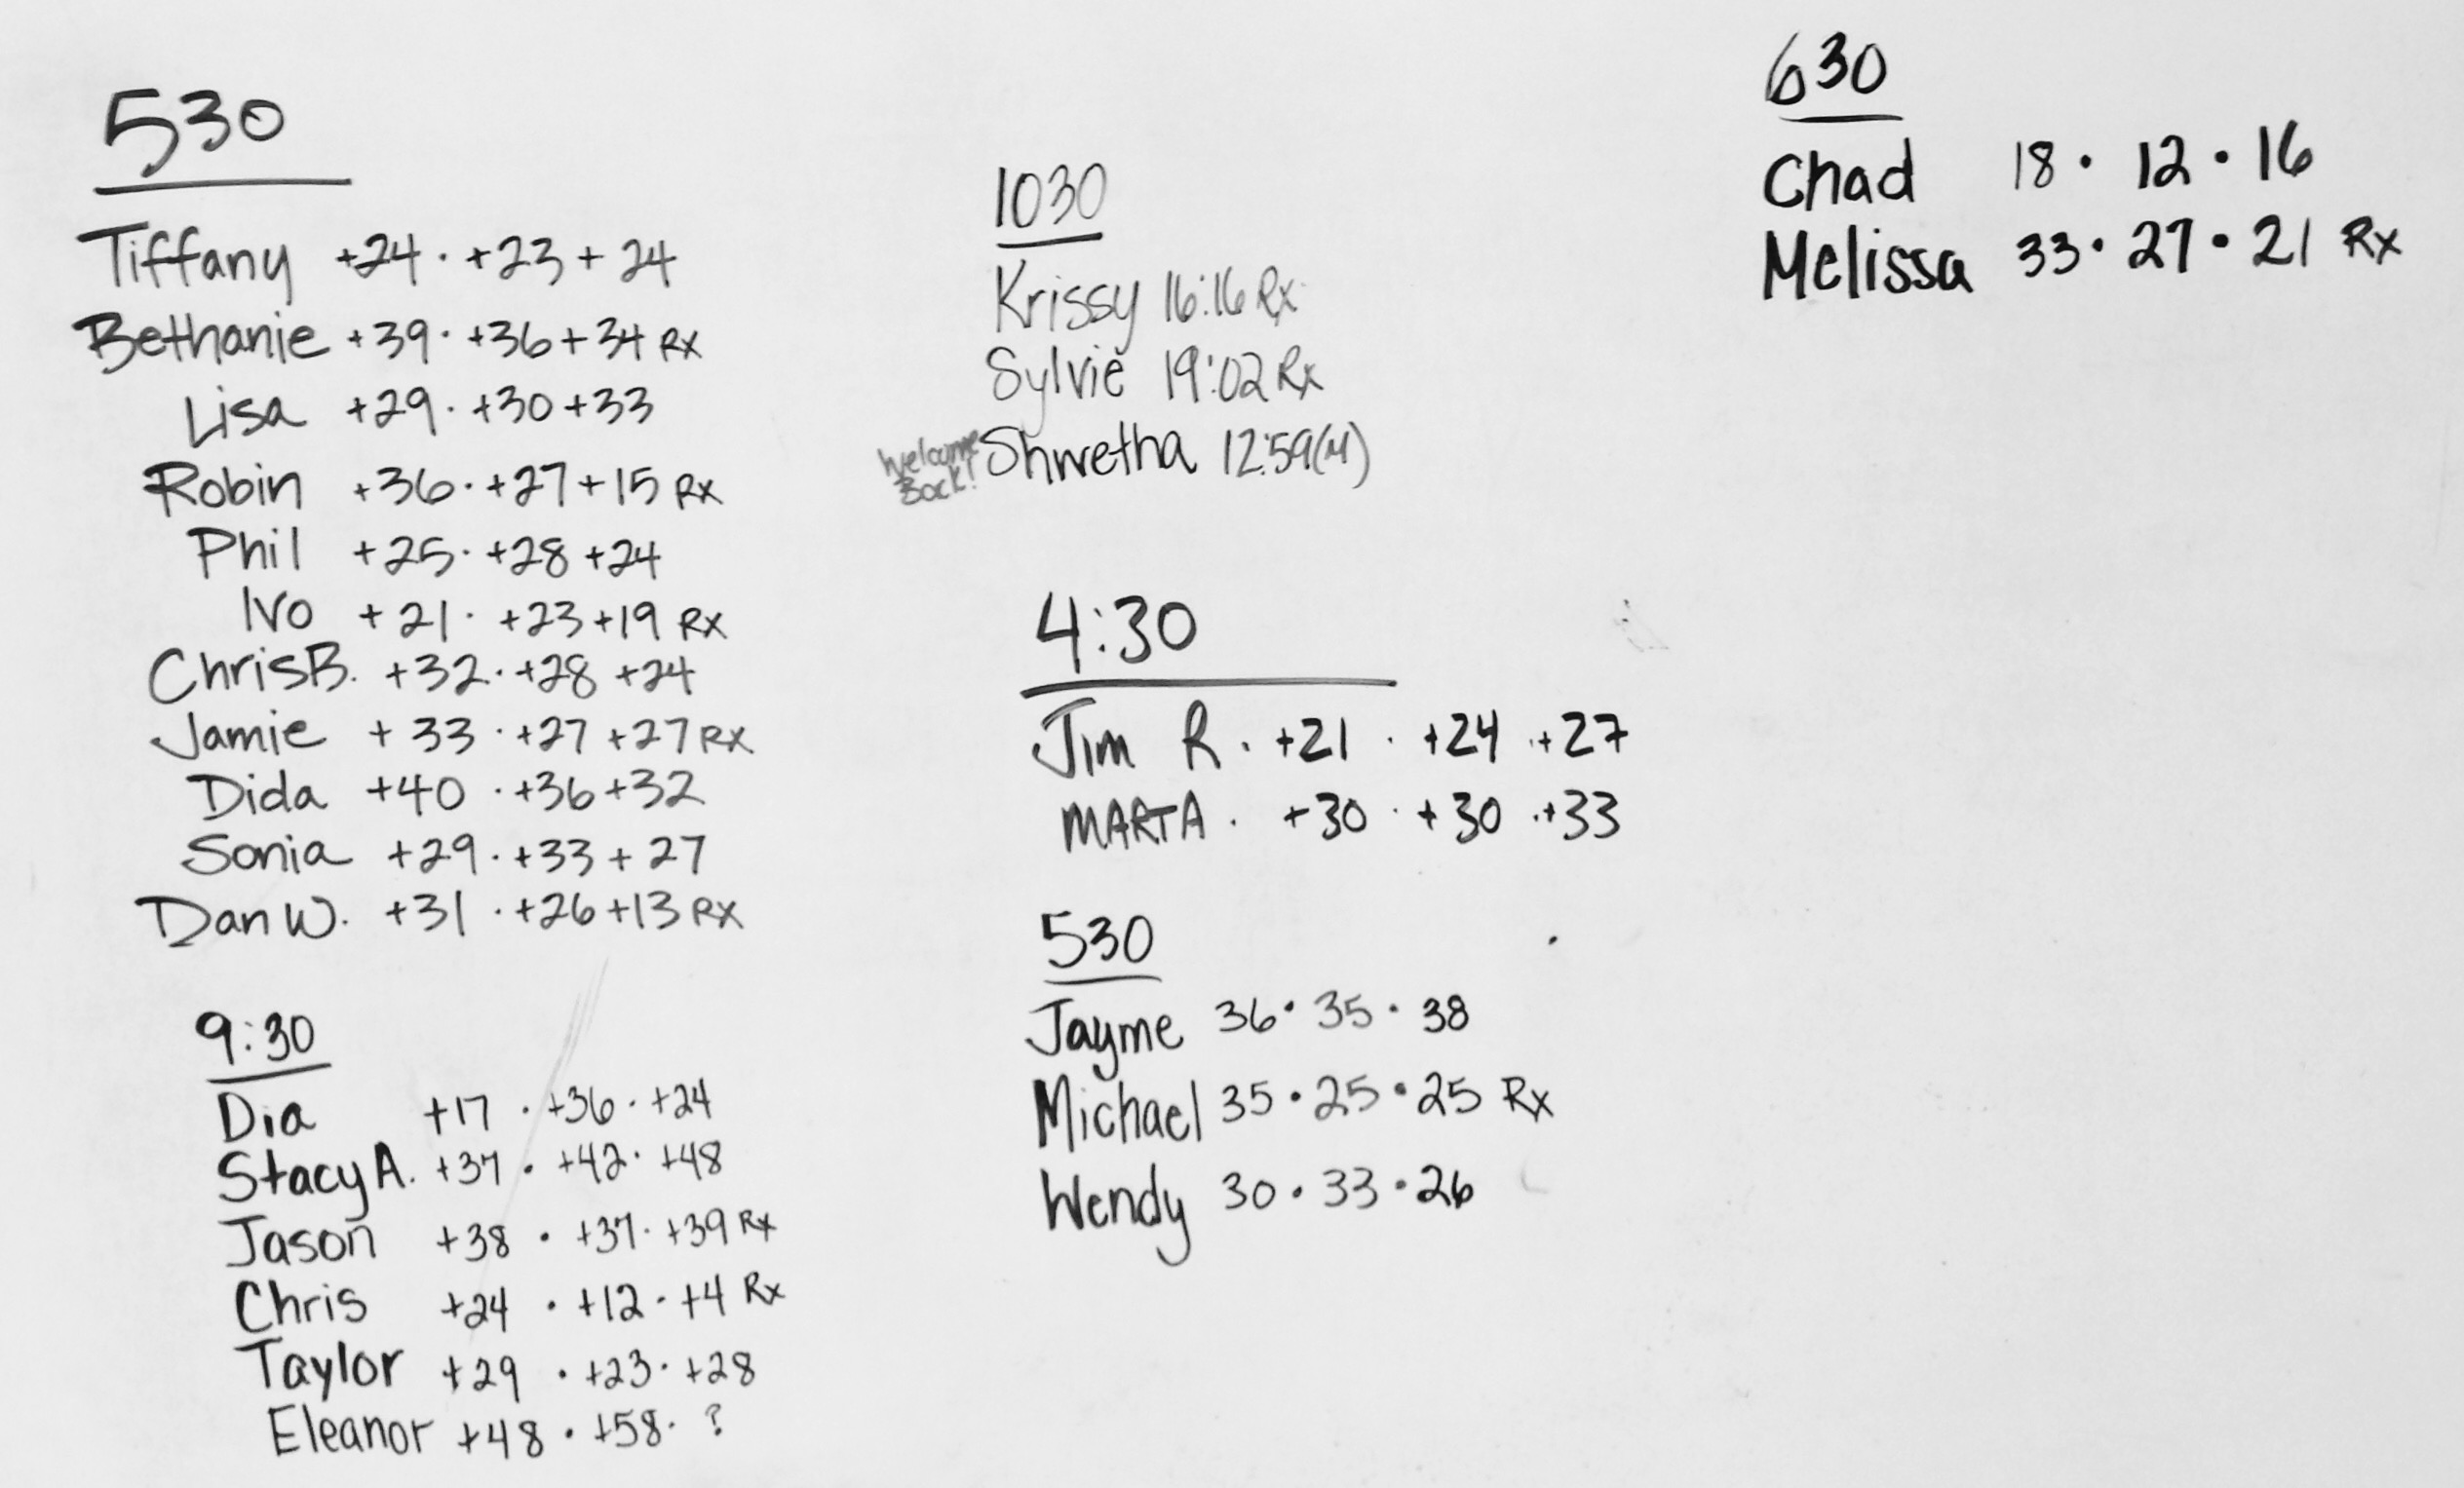 530
Tiffany +24 · +23 + 24
Bethanie +39 · +36 + 34 Rx
Lisa +29 · +30 +33
Robin +36 · +27 + 15 Rx
Phil +25 · +28 +24
Ivo +21 · +23 +19 Rx
Chris B. +32 · +28 +24
Jamie + 33 · +27 +27 Rx
Dida +40 · +36 +32
Sonia +29 · +33 + 27
Dan W. +31 · +26 +13 Rx
9:30
Dia +17 · +36 · +24
Stacy A. +37 · +42 · +48
Jason +38 · +37 · +39 Rx
Chris +24 · +12 · +4 Rx
Taylor +29 · +23 · +28
Eleanor +48 · +58 · ?
1030
Krissy 16:16 Rx
Sylvie 19:02 Rx
Welcome
Back!
Shwetha 12:59 (M)
4:30
Jim R. +21 · +24 · +27
MARTA . +30 · +30 · +33
530
Jayme 36 · 35 · 38
Michael 35 · 25 · 25 Rx
Wendy 30 · 33 · 26
630
Chad 18 · 12 · 16
Melissa 33 · 27 · 21 Rx